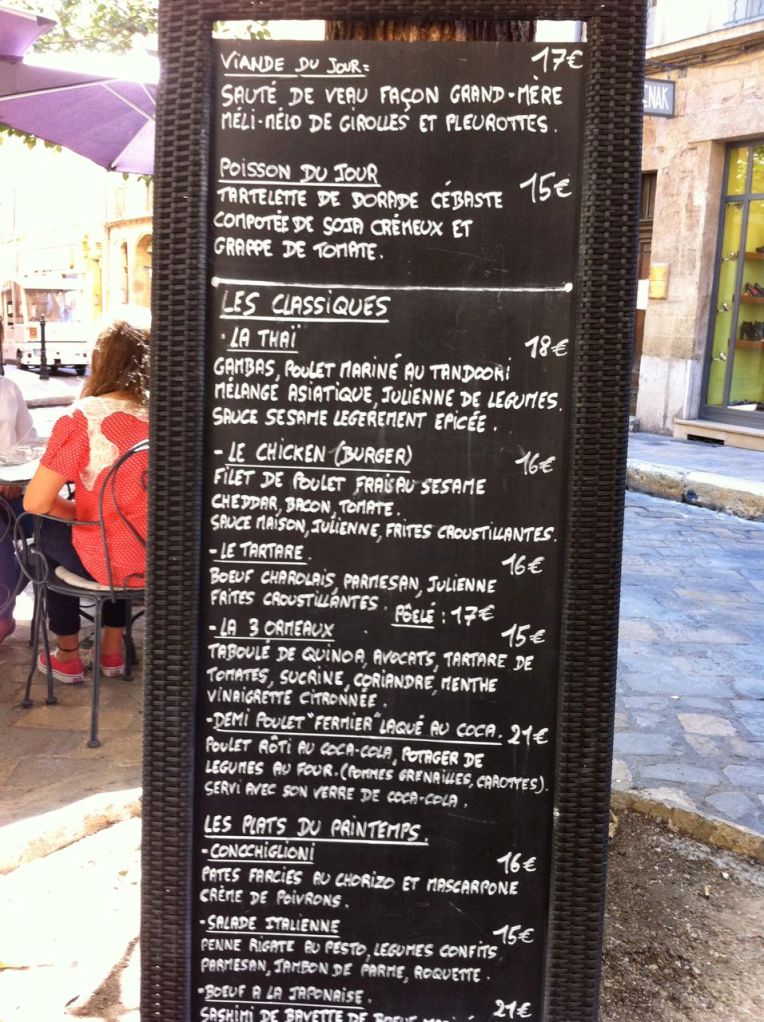 VIANDE DU JOUR= 17€
SAUTÉ DE VEAU FAÇON GRAND-MÈRE
MÉLI-MÉLO DE GIROLLES ET PLEUROTTES.
POISSON DU JOUR
TARTELETTE DE DORADE CÉBASTE 15€
COMPOTÉE DE SOJA CRÉMEUX ET
GRAPPE DE TOMATE.
LES CLASSIQUES
- LA THAÏ 18€
GAMBAS, POULET MARINÉ AU TANDOORI
MÉLANGE ASIATIQUE, JULIENNE DE LEGUMES.
SAUCE SESAME LEGEREMENT EPICÉE.
- LE CHICKEN (BURGER) 16€
FILET DE POULET FRAIS AU SESAME
CHEDDAR, BACON, TOMATE.
SAUCE MAISON, JULIENNE, FRITES CROUSTILLANTES.
- LE TARTARE. 16€
BOEUF CHAROLAIS, PARMESAN, JULIENNE
FRITES CROUSTILLANTES. PÔELÉ : 17€
- LA 3 ORMEAUX 15€
TABOULÉ DE QUINOA, AVOCATS, TARTARE DE
TOMATES, SUCRINE, CORIANDRE, MENTHE
VINAIGRETTE CITRONNÉE.
- DEMI POULET "FERMIER" LAQUÉ AU COCA. 21€
POULET RÔTI AU COCA-COLA, POTAGER DE
LEGUMES AU FOUR. (POMMES GRENAILLES, CAROTTES).
SERVI AVEC SON VERRE DE COCA-COLA.
LES PLATS DU PRINTEMPS.
- CONCCHIGLIONI 16€
PATES FARCIES AU CHORIZO ET MASCARPONE
CRÈME DE POIVRONS.
- SALADE ITALIENNE 15€
PENNE RIGATE AU PESTO, LEGUMES CONFITS,
PARMESAN, JAMBON DE PARME, ROQUETTE.
- BOEUF A LA JAPONAISE. 21€
SASHIMI DE BAVETTE DE BOEUF
NAK